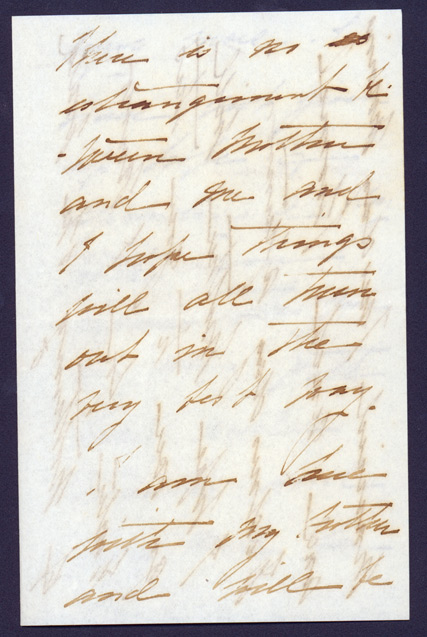 There is no
estrangement be-
-tween Mother
and me and
I hope things
will all turn
out in the
very best way.
I am here
with my Mother
and will be